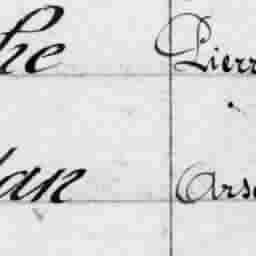 he Pierr
lan Arse